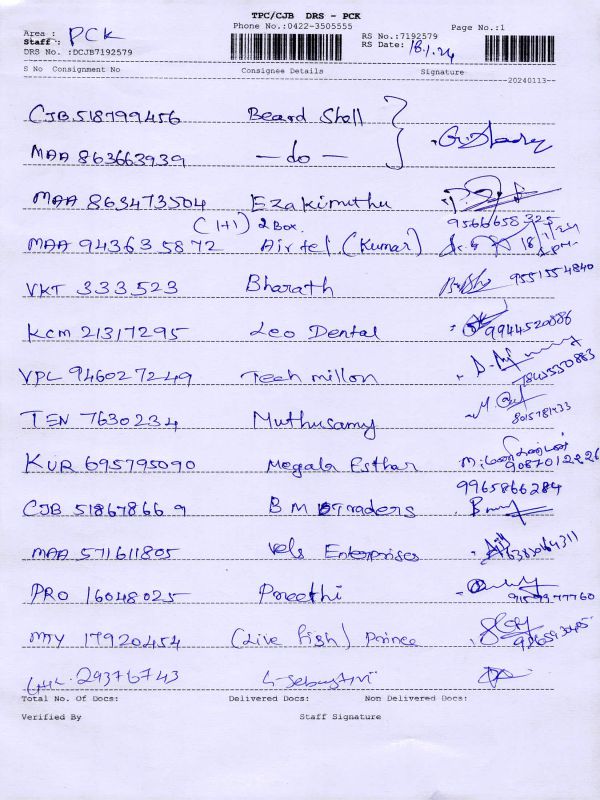 TPC/CJB DRS - PCK
Area : PCK
Phone No.:0422-3505555
Page No.:1
Staff :
RS No.:7192579
DRS No. :DCJB7192579
RS Date: 18.1.24
S No Consignment No Consignee Details Signature
20240113
CJB 518799456 Beard Shell
MAA 863663939 - do -
MAA 863473504 Ezakimuthu
9566658325
(1+1) 2 Box.
MAA 943635872 Airtel (Kumar) 18/1/24
VKT 333523 Bharath 9551554840
KCM 21317295 Leo Dental 9944520886
VPL 946027249 Tech millon
TEN 7630234 Muthusamy
KUR 695795090 Megala Esthar
9965866284
CJB 518678669 B M Traders
MAA 571611805 Vels Enterprises
PRO 16048025 Preethi
MTY 17920454 (Live fish) Prince
29376743
Total No. Of Docs: Delivered Docs: Non Delivered Docs:
Verified By Staff Signature